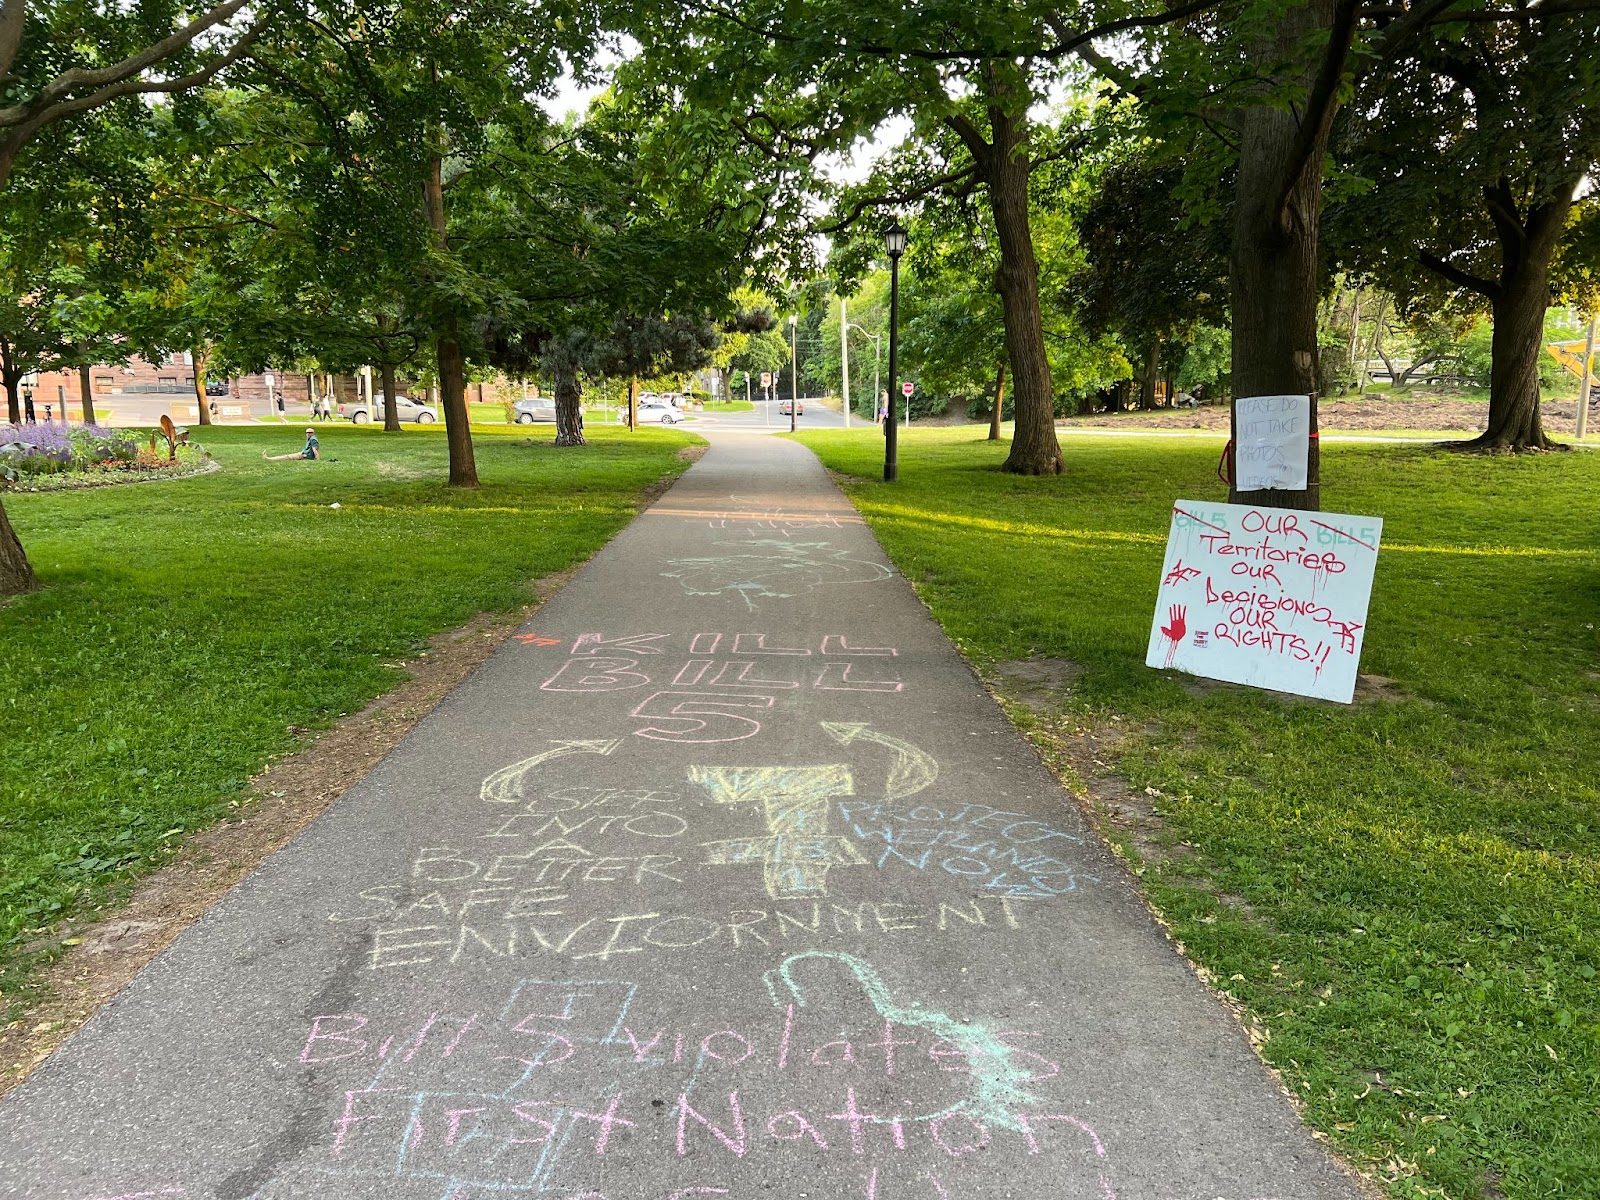 PLEASE DO
NOT TAKE
PHOTOS
VIDEOS
BILL 5 OUR BILL 5
Territories
OUR
Decisions
OUR
RIGHTS!!
KILL
BILL
5
STEP
INTO
A
BETTER
SAFE
ENVIORNMENT
PROTECT
WETLANDS
NOW
Bill 5 violates
First Nation